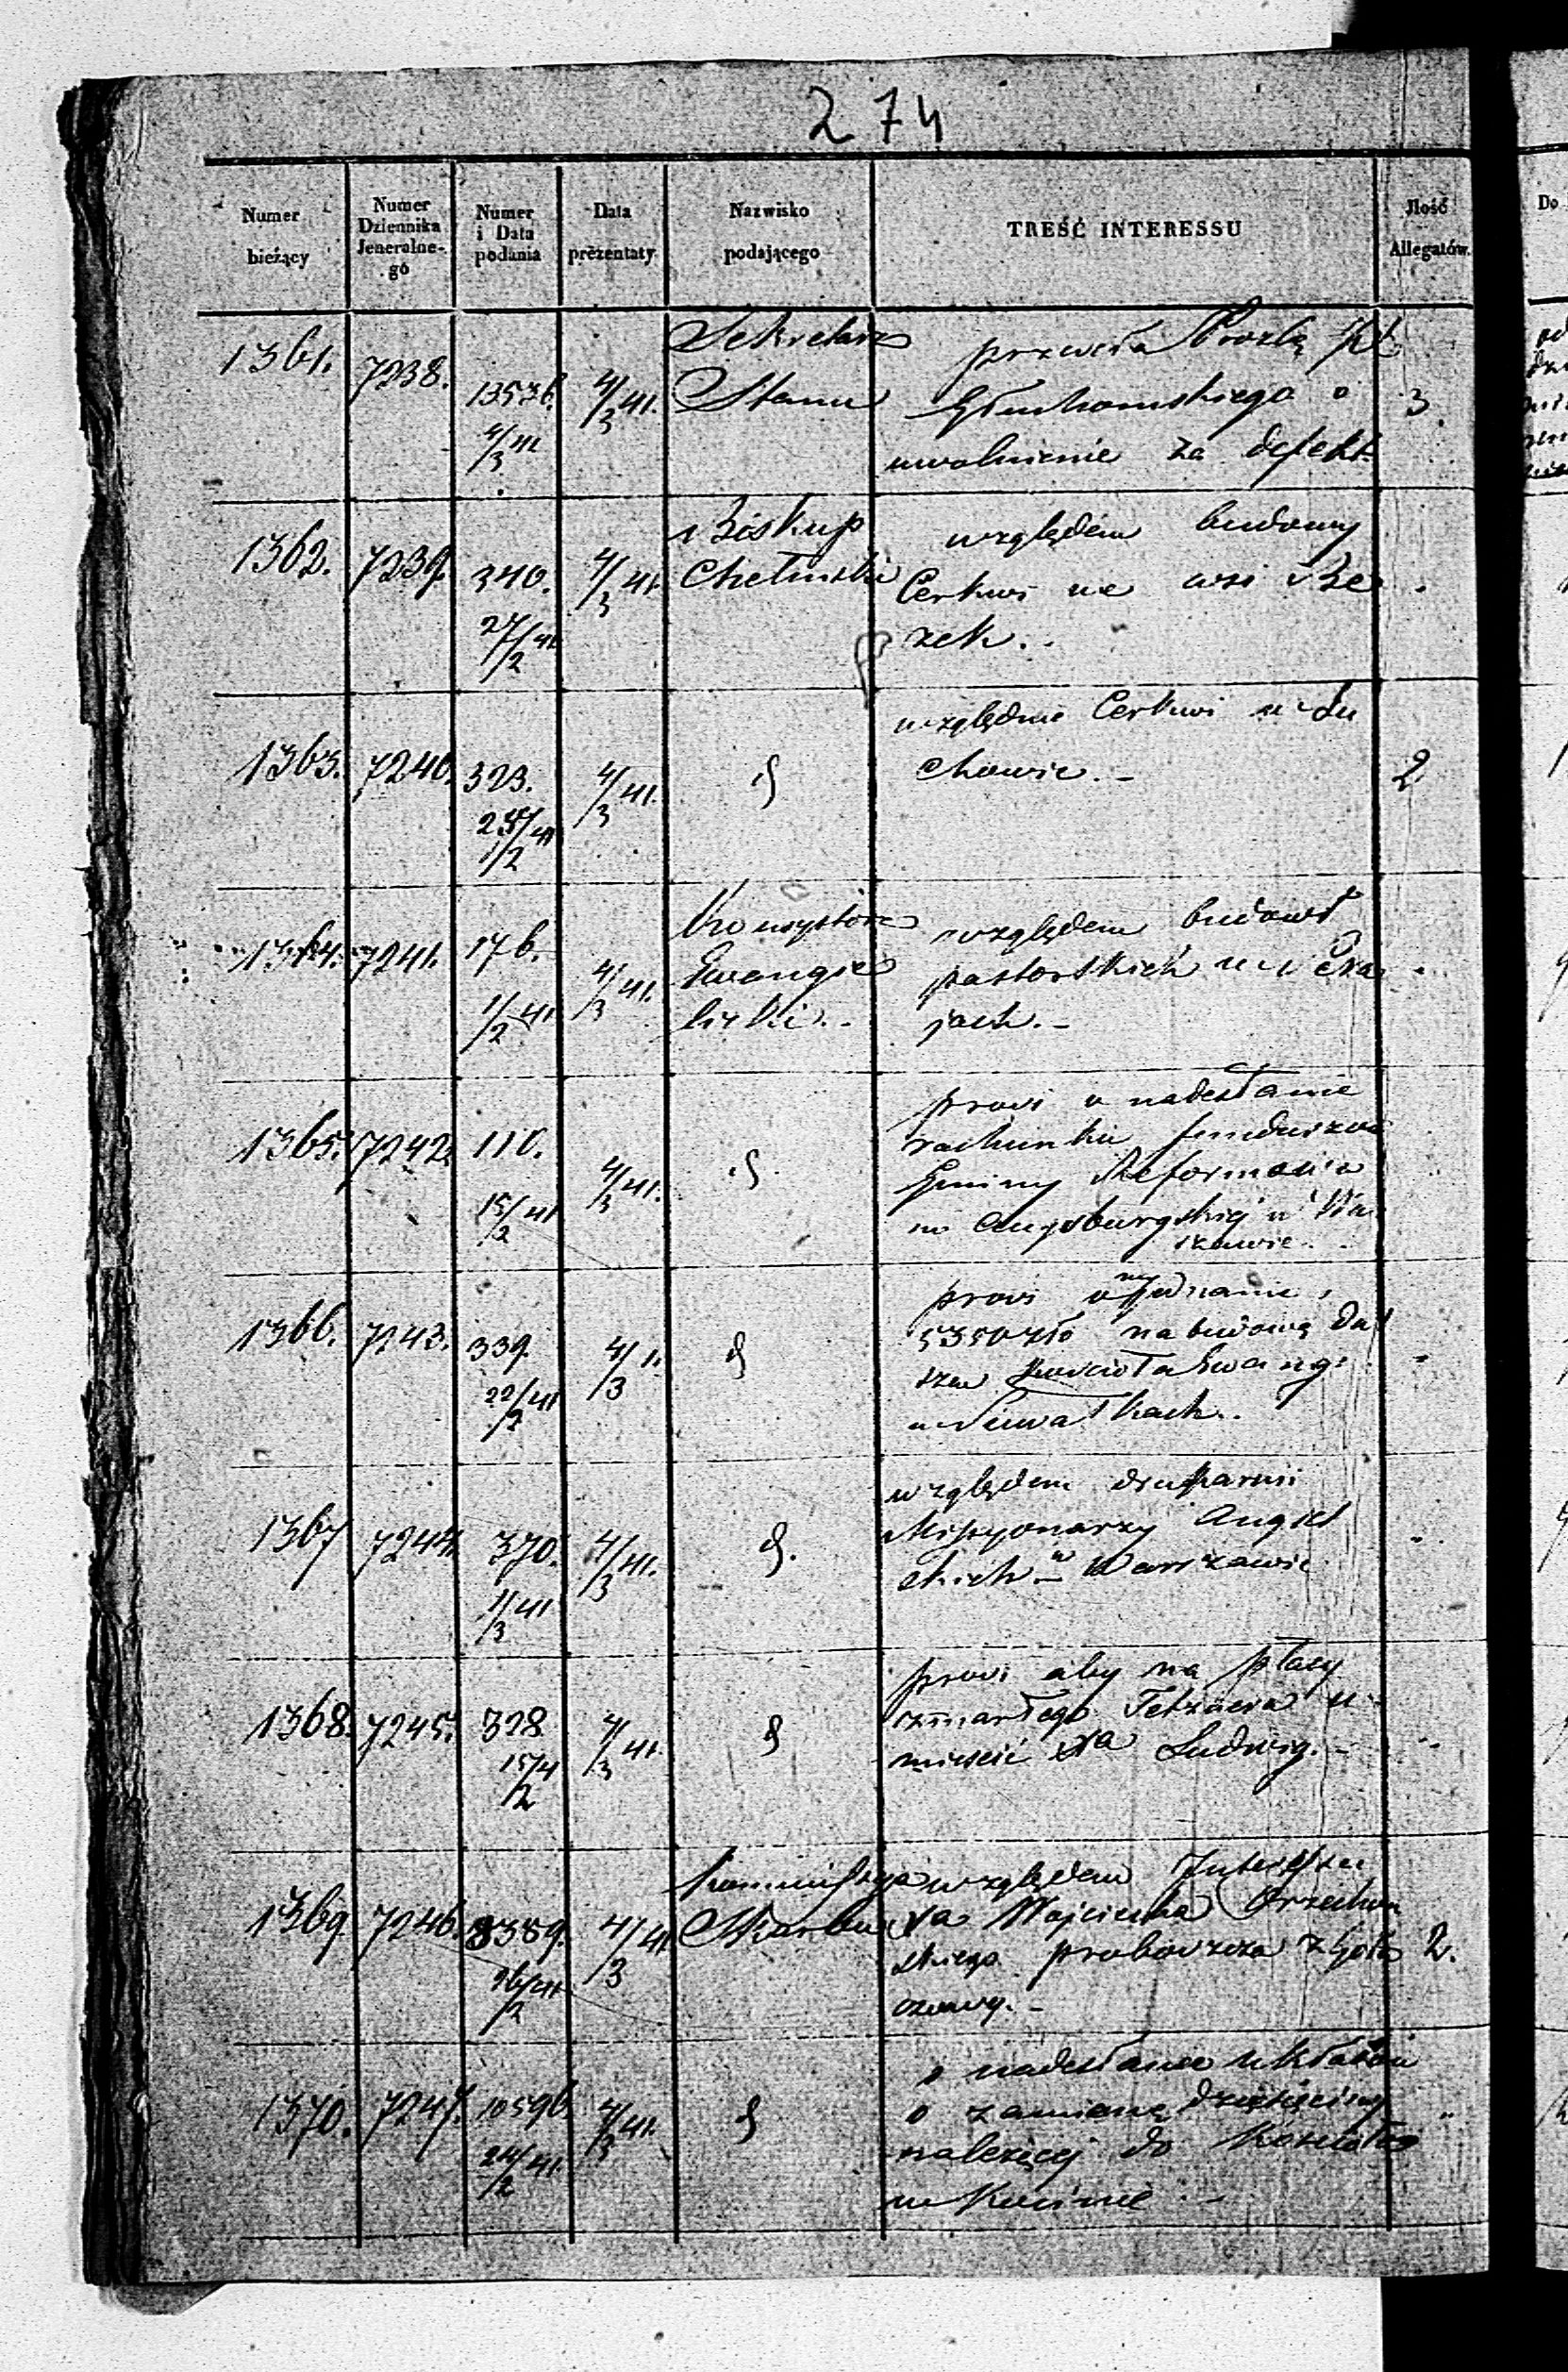 274
Numer bieżący | Numer Dziennika Jeneralne-go | Numer i Data podania | Data prezentaty | Nazwisko podającego | TREŚĆ INTERESSU | Ilość Allegatów.
1361. 7238. 13536. 4/3 41 4/3 41. Sekretarz Stanu
przesyła Prozbę
Głuchowskiego o 3
uwolnienie za defekt
1362. 7239. 340. 27/2 41 4/3 41. Biskup Chełmski
względem budowy
Cerkwi we wsi Be
zek.
1363. 7240. 323. 4/3 41. d
względnie Cerkwi w Łu
chowie. 2
1364. 7241. 176. 1/2 41 4/3 41. Konsystorz Ewangie licki.
względem budowl
pastorskich w
jach.
1365. 7242. 110. 15/2 41 4/3 41. d
prosi o nadesłanie
rachunku funduszów
Gminy
Augsburgskiej w War
szawie.
1366. 7243. 339. 22/2 41 4/3 41. d
prosi o wyjednanie
5350 zło na budowę dal
szą Kościoła Ewang.
w Suwałkach.
1367 7244. 370. 1/3 41 4/3 41. d.
względem drukarni
Missyonarzy Angiel
skich w Warszawie
1368. 7245. 328 15/2 41 4/3 41. d
prosi aby na płacy
zmarłego u-
mieścić Xa Ludwig.
1369. 7246. 8389. 26/2 41 4/3 41 Kommissya Skarbu
względem Interessu
Xa Wojciecha Orzechow
skiego proboszcza z 2.
1370. 7247. 10596 24/2 41. 4/3 41. d
o nadesłanie układów
o zamianę dziesięciny
należącej do Kościoła
w Kucinie